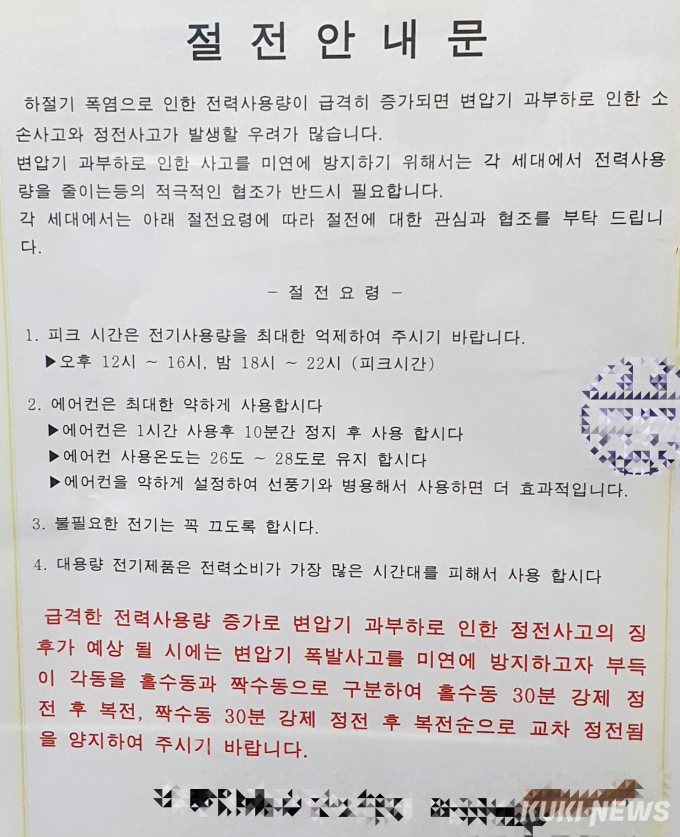 절전안내문
하절기 폭염으로 인한 전력사용량이 급격히 증가되면 변압기 과부하로 인한 소
손사고와 정전사고가 발생할 우려가 많습니다.
변압기 과부하로 인한 사고를 미연에 방지하기 위해서는 각 세대에서 전력사용
량을 줄이는등의 적극적인 협조가 반드시 필요합니다.
각 세대에서는 아래 절전요령에 따라 절전에 대한 관심과 협조를 부탁 드립니
다.
- 절전요령 -
1. 피크 시간은 전기사용량을 최대한 억제하여 주시기 바랍니다.
▶오후 12시 ~ 16시, 밤 18시 ~ 22시 (피크시간)
2. 에어컨은 최대한 약하게 사용합시다
▶에어컨은 1시간 사용후 10분간 정지 후 사용 합시다
▶에어컨 사용온도는 26도 ~ 28도로 유지 합시다
▶에어컨을 약하게 설정하여 선풍기와 병용해서 사용하면 더 효과적입니다.
3. 불필요한 전기는 꼭 끄도록 합시다.
4. 대용량 전기제품은 전력소비가 가장 많은 시간대를 피해서 사용 합시다
급격한 전력사용량 증가로 변압기 과부하로 인한 정전사고의 징
후가 예상 될 시에는 변압기 폭발사고를 미연에 방지하고자 부득
이 각동을 홀수동과 짝수동으로 구분하여 홀수동 30분 강제 정
전 후 복전, 짝수동 30분 강제 정전 후 복전순으로 교차 정전됨
을 양지하여 주시기 바랍니다.
KUKI NEWS